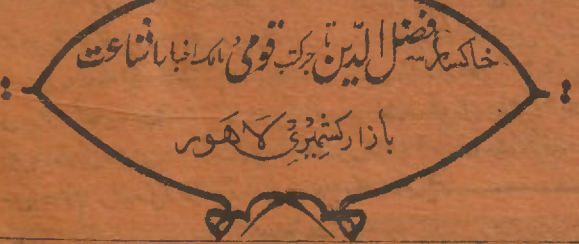 خاکسار فضل الدین تاجر کتب قومی مالک اخبار اشاعت
بازار کشمیری لاہور